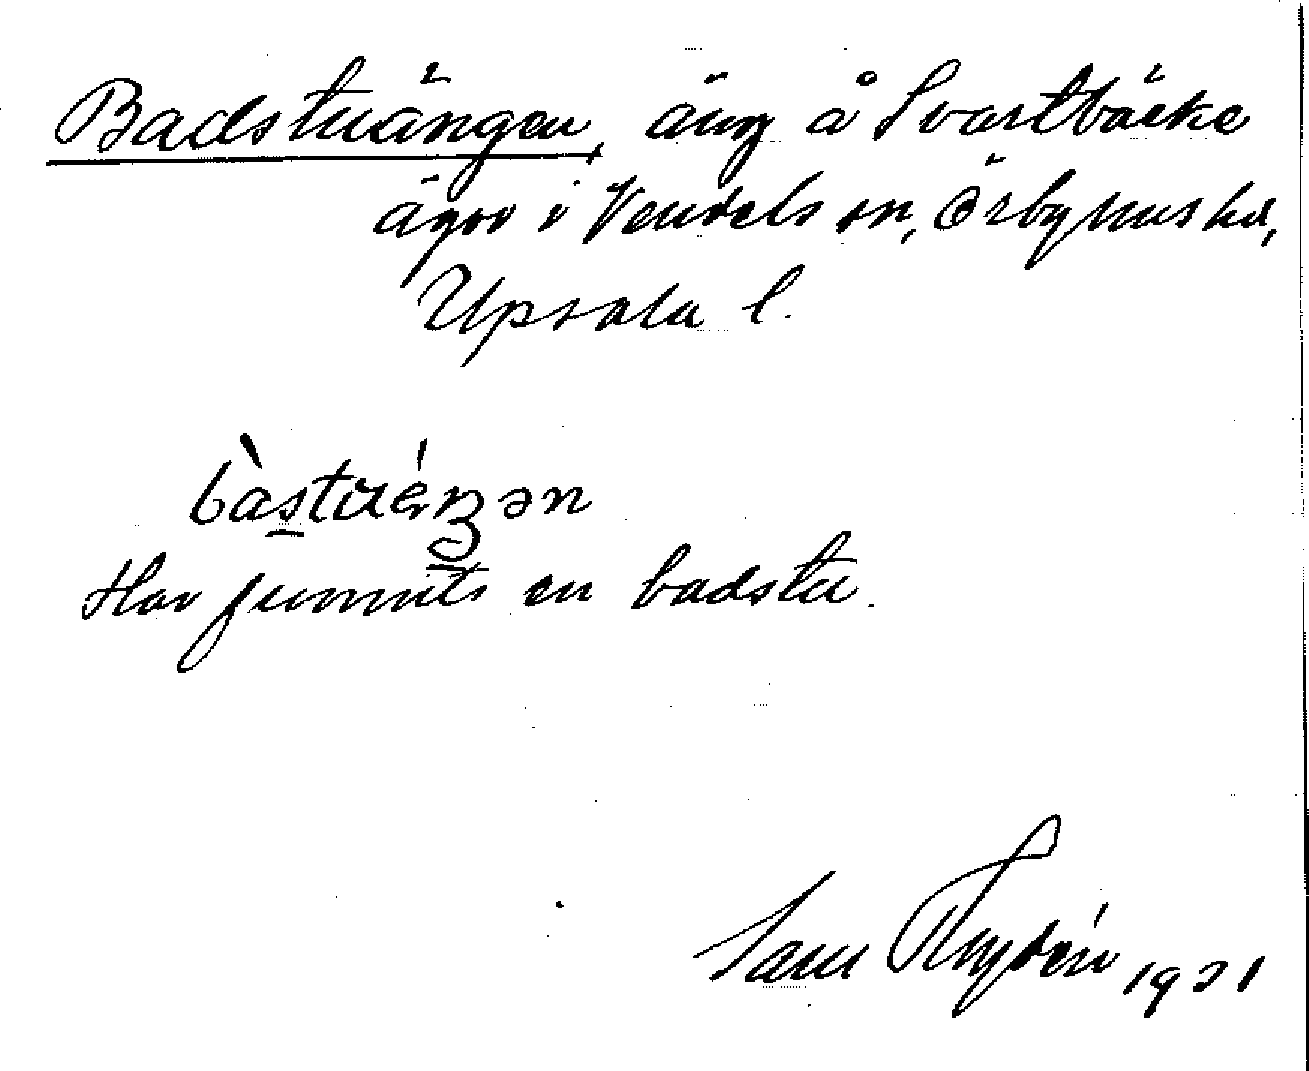 Badstuängen, äng å Svartbäcke
ägor i Vendels sn, Örbyhus hd,
Upsala l.
bàstuéŋən
Har funnits en badstu.
Sam Thydén 1931